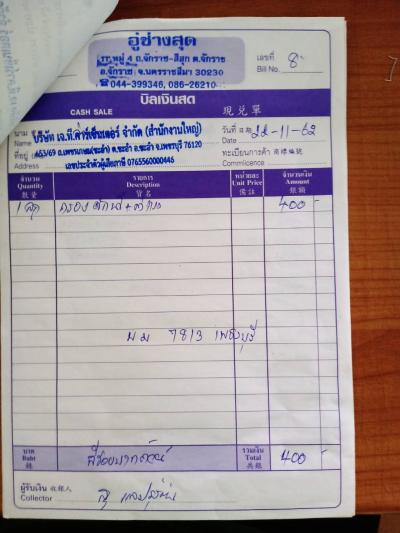 อู่ช่างสุด
77 หมู่ 4 ถ.จักราช-สีสุก ต.จักราช
อ.จักราช จ.นครราชสีมา 30230
☎ 044-399346, 086-26210
เลขที่ 8
Bill No.
บิลเงินสด
CASH SALE 現兌單
นาม
Name
บริษัท เจ.ที.คาร์เซ็นเตอร์ จำกัด (สำนักงานใหญ่)
วันที่ 日期 22-11-62
Date
ที่อยู่
Address
453/69 ถ.เพชรเกษม(ชะอำ) ต.ชะอำ อ.ชะอำ จ.เพชรบุรี 76120
เลขประจำตัวผู้เสียภาษี 0765560000446
ทะเบียนการค้า 商標編號
Commlicence
จำนวน รายการ หน่วยละ จำนวนเงิน
Quantity Description Unit Price Amount
數量 貨名 備註 銀額
1 ชุด 400 -
ผม 7813 เพชรบุรี
บาท
Baht
銖
สี่ร้อยบาทถ้วน
รวมเงิน
Total
共銀
400 -
ผู้รับเงิน 收銀人
Collector